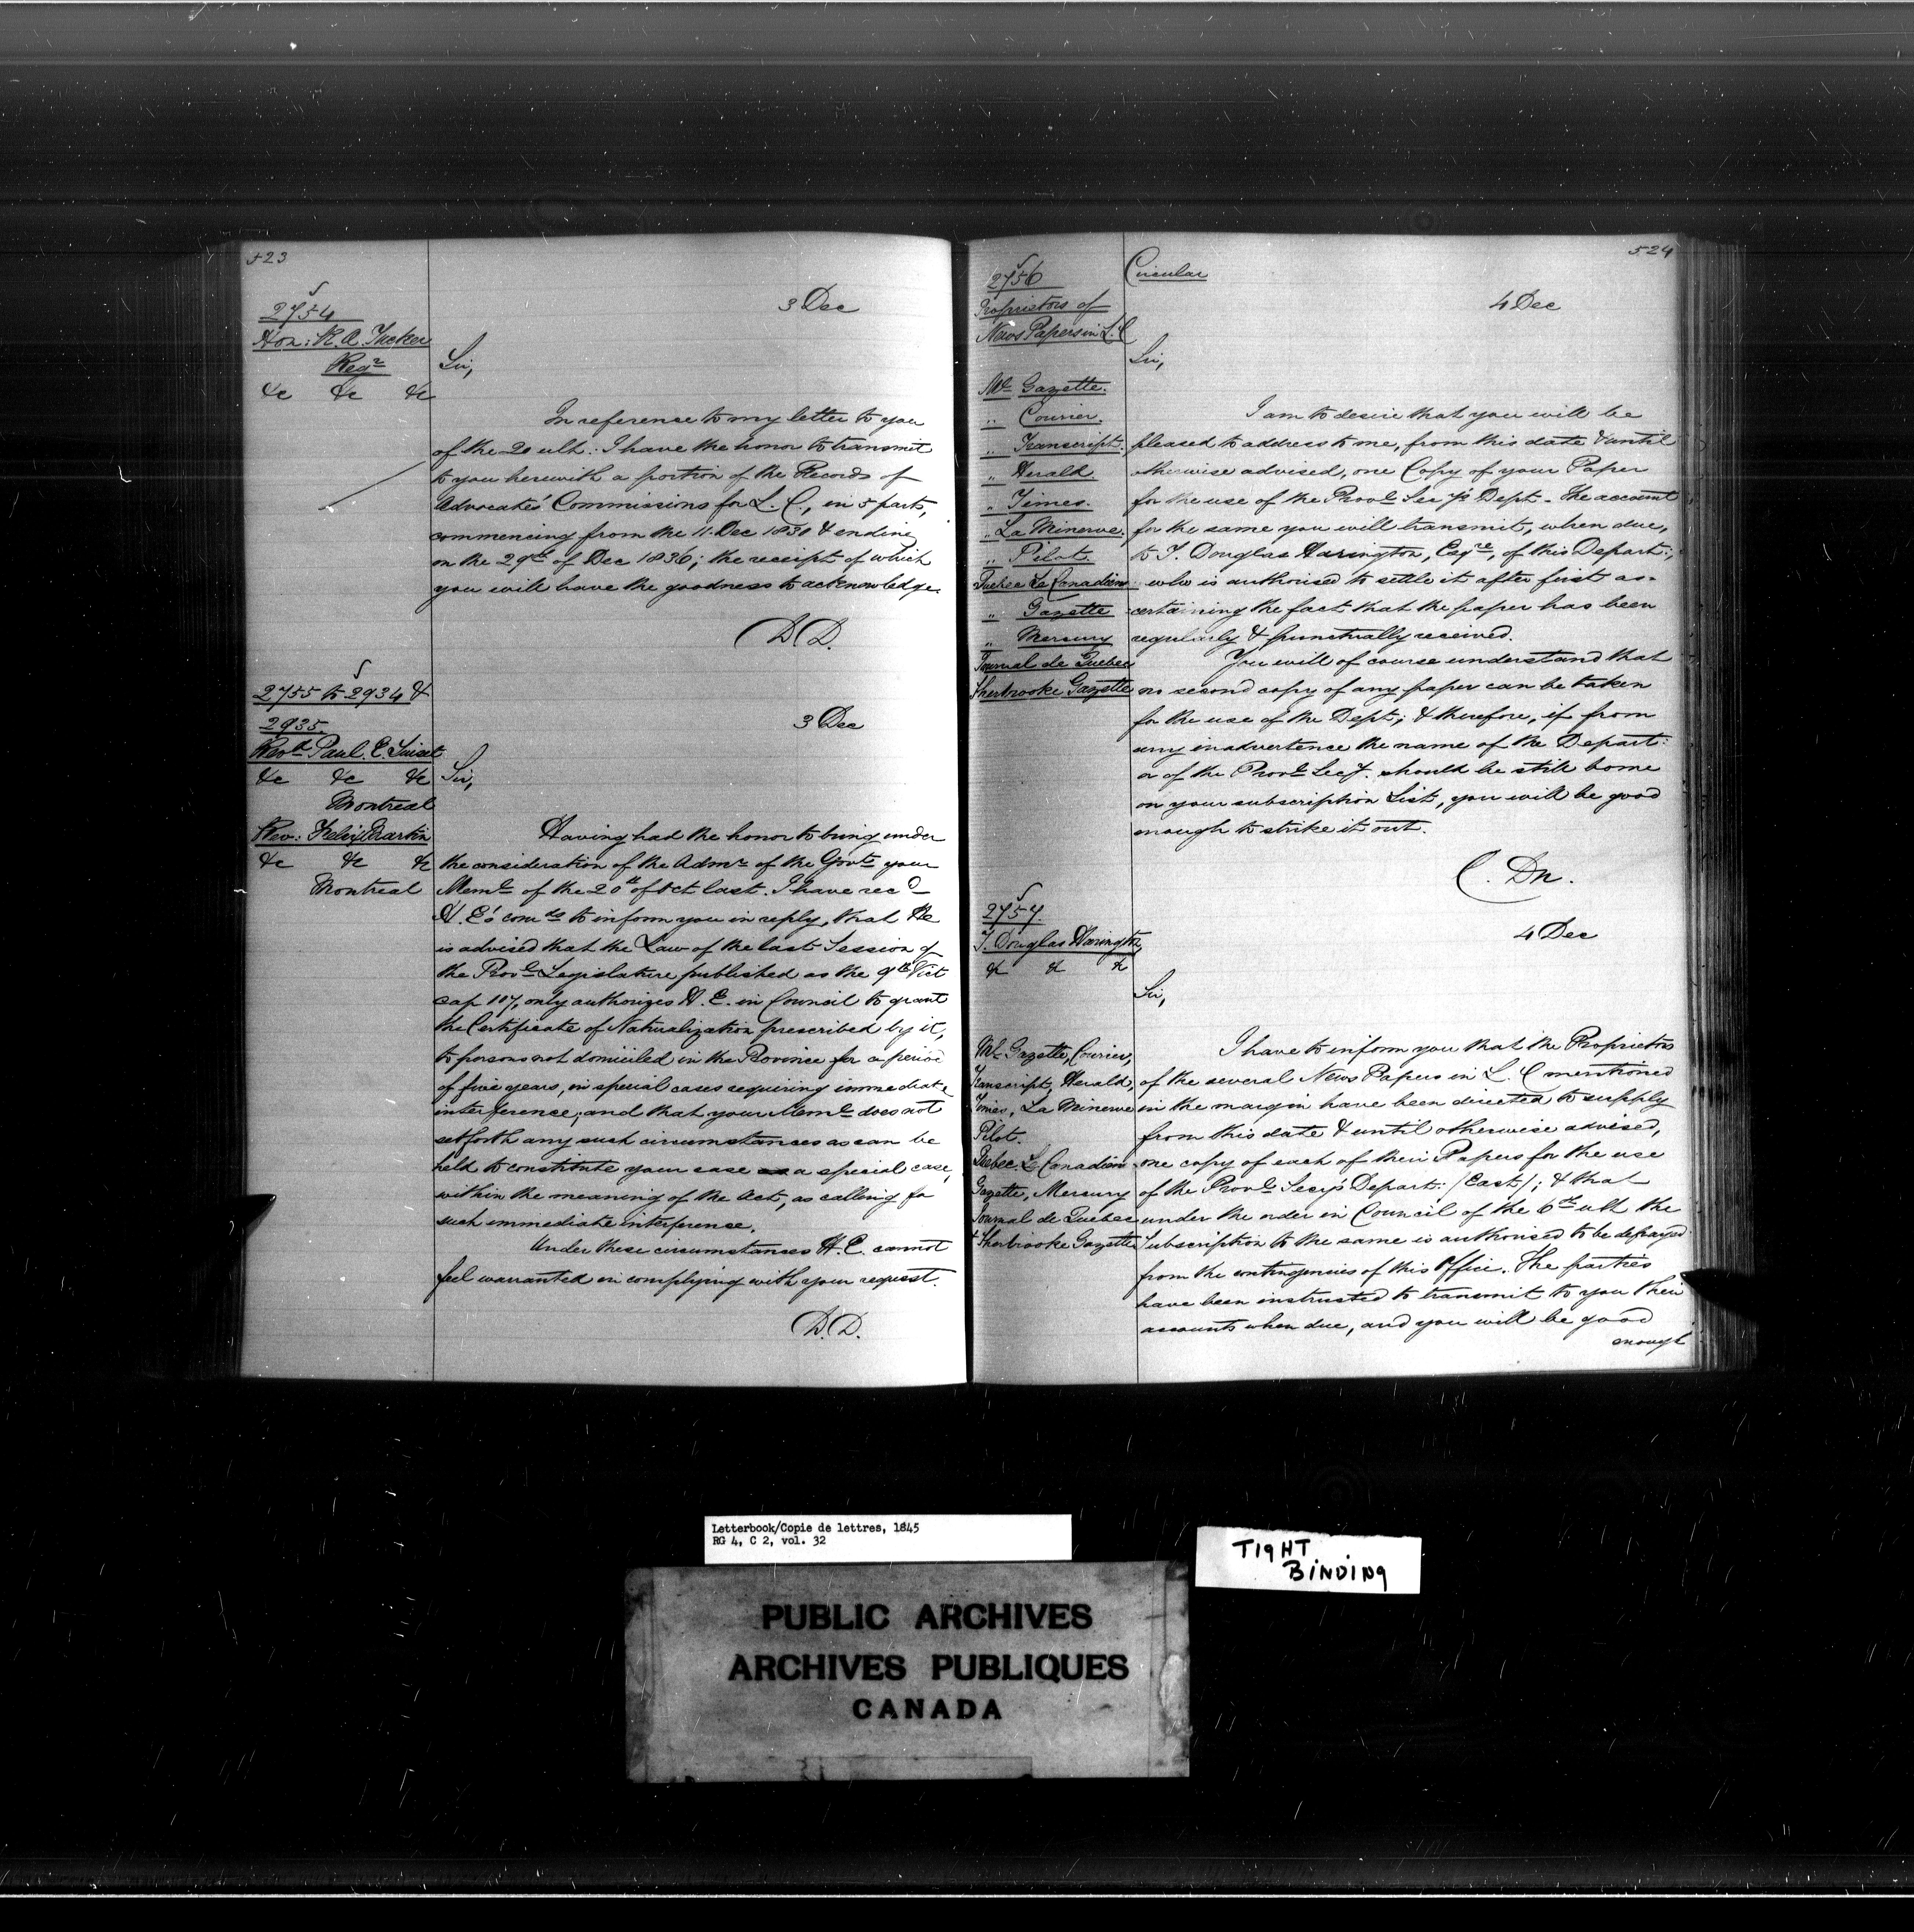 523
2754
3 Dec
Hon: R. A. Tucker
Regr
&c &c &c
Sir,
In reference to my letter to you
of the 20 ult: I have the honor to transmit
to you herewith a portion of the Records of
Advocates' Commissions for L. C., in 5 parts,
commencing from the 11. Dec 1830 & ending
on the 29th of Dec 1836; the receipt of which
you will have the goodness to acknowledge.
D. D.
2755 to 2934 &
2935.
3 Dec
Revd Paul. E.
&c &c &c
Montreal
Rev: Felix Martin
&c &c &c
Montreal
Sir,
Having had the honor to bring under
the consideration of the Admr of the Govt your
Meml of the 20th of Oct last. I have recd
H. E's comds to inform you in reply, that He
is advised that the Law of the last Session of
the Provl Legislature published as the 9th Vict
cap 107, only authorizes H. E. in Council to grant
the Certificate of Naturalization prescribed by it,
to persons not domiciled in the Province for a period
of five years, in special cases requiring immediate
interference; and that your Meml does not
set forth any such circumstances as can be
held to constitute your case a special case,
within the meaning of the Act, as calling for
such immediate interference.
Under these circumstances H. E. cannot
feel warranted in complying with your request.
D. D.
524
2756
Circular
4 Dec
Proprietors of
News Papers in L. C
Sir,
Ml Gazette.
" Courier.
" Transcript.
" Herald.
" Times.
" La Minerve.
" Pilot.
Quebec Le Canadien
" Gazette
" Mercury
Journal de Quebec
Sherbrooke Gazette
I am to desire that you will be
pleased to address to me, from this date & until
otherwise advised, one Copy of your Paper
for the use of the Provl Sec'y's Dept - The account
for the same you will transmit, when due,
to T. Douglas Harington, Esqre, of this Depart:,
who is authorised to settle it after first as-
certaining the fact that the paper has been
regularly & punctually received.
You will of course understand that
no second copy of any paper can be taken
for the use of the Dept; & therefore, if from
any inadvertence the name of the Depart:
or of the Provl Secy. should be still borne
on your subscription List, you will be good
enough to strike it out.
C. Dn.
2757.
4 Dec
T. Douglas Harington
&c &c &c
Sir,
Ml Gazette, Courier,
Transcript, Herald,
Times, La Minerve
Pilot.
Quebec. Le Canadien
Gazette, Mercury
Journal de Quebec
& Sherbrooke Gazette
I have to inform you that the Proprietors
of the several News Papers in L. C mentioned
in the margin have been directed to supply
from this date & until otherwise advised,
one copy of each of their Papers for the use
of the Provl Secy's Depart: (East); & that
under the order in Council of the 6th ult the
Subscription to the same is authorised to be defrayed
from the contingencies of this Office. The parties
have been instructed to transmit to you their
accounts when due, and you will be good
enough
Letterbook/Copie de lettres, 1845
RG 4, C 2, vol. 32
TIGHT
BINDING
PUBLIC ARCHIVES
ARCHIVES PUBLIQUES
CANADA